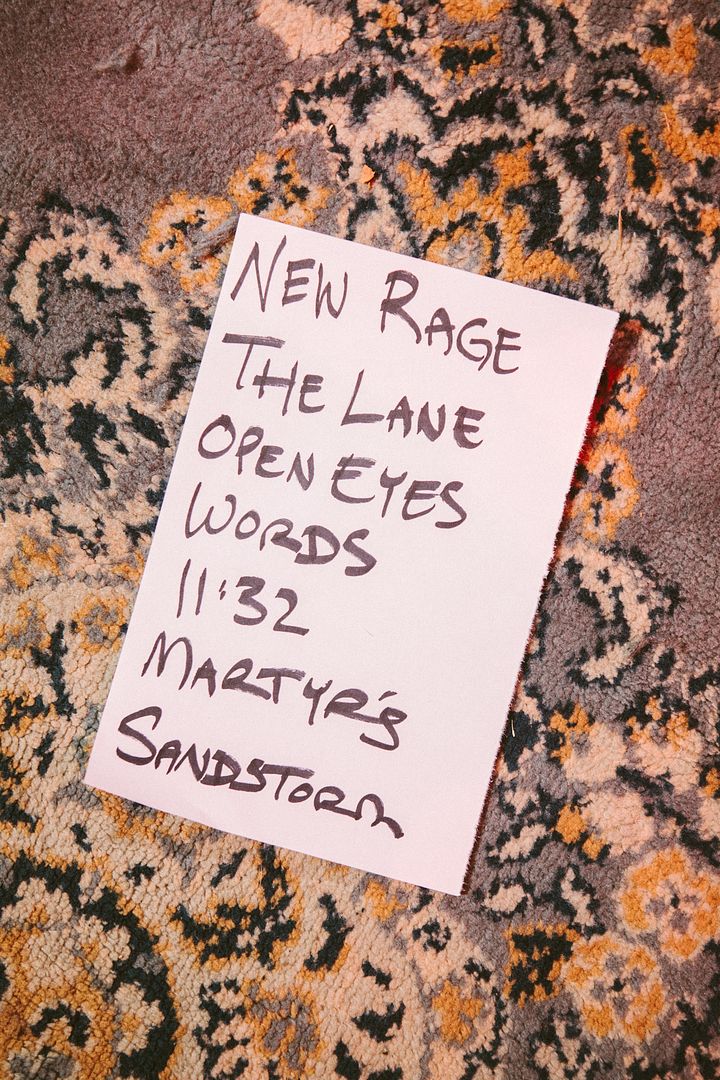 NEW RAGE
THE LANE
OPEN EYES
WORDS
11:32
MARTYR'S
SANDSTORM